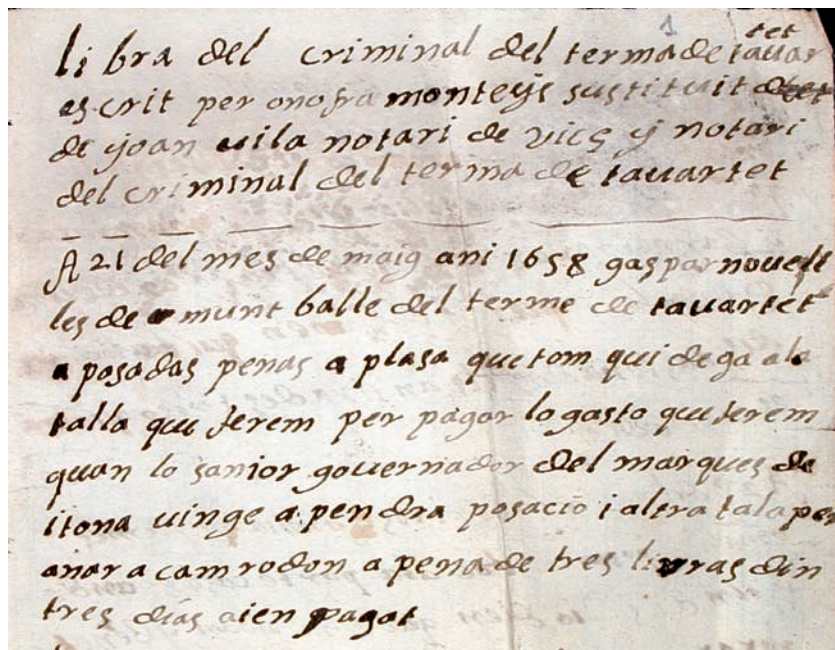 1
libra del criminal del terma de tauar
tet
escrit per onofra monteys sustituit
de yoan uila notari de vics y notari
del criminal del terma de tauartet
A 21 del mes de maig ani 1658 gaspar nouell
les de munt balle del terme de tauartet
a posadas penas a plasa que tom qui dega a la
talla que ferem per pagar lo gasto que ferem
quan lo sanior gouernador del marques de
itona uinge a pendra posacio i altra tala per
anar a camrodon a pena de tres liuras din
tres dias aien pagat